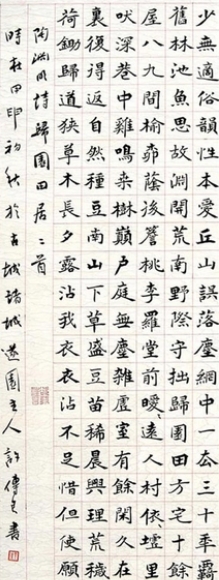 少無適俗韻性本愛丘山誤落塵網中一去三十年羈
舊林池魚思故淵開荒南野際守拙歸園田方宅十餘
屋八九間榆柳蔭後簷桃李羅堂前曖遠人村依墟里
吠深巷中雞鳴桑樹顛戶庭無塵雜虛室有餘閑久在
裏復得返自然種豆南山下草盛豆苗稀晨興理荒穢
荷鋤歸道狹草木長夕露沾我衣衣沾不足惜但使願
陶淵明詩歸園田居二首
時在甲申初秋於古城諸城遂園主人許傳良書